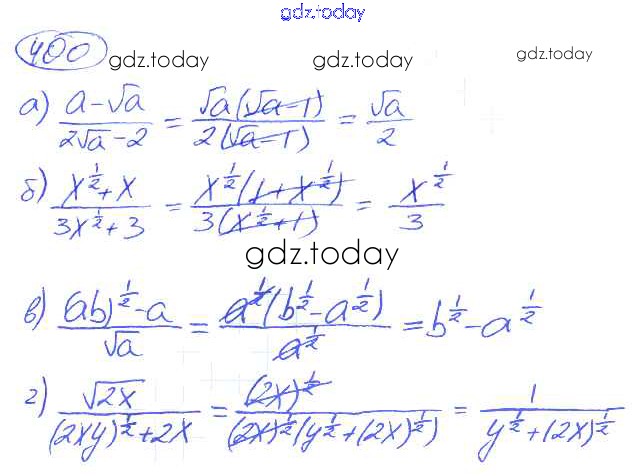 gdz.today
400
gdz.today gdz.today gdz.today
а) (a-√a)/(2√a-2) = (√a(√a-1))/(2(√a-1)) = √a/2
б) (x^(1/2)+x)/(3x^(1/2)+3) = (x^(1/2)(1+x^(1/2)))/(3(x^(1/2)+1)) = x^(1/2)/3
gdz.today
в) ((ab)^(1/2)-a)/√a = (a^(1/2)(b^(1/2)-a^(1/2)))/a^(1/2) = b^(1/2)-a^(1/2)
г) √2x/((2xy)^(1/2)+2x) = (2x)^(1/2)/((2x)^(1/2)(y^(1/2)+(2x)^(1/2))) = 1/(y^(1/2)+(2x)^(1/2))